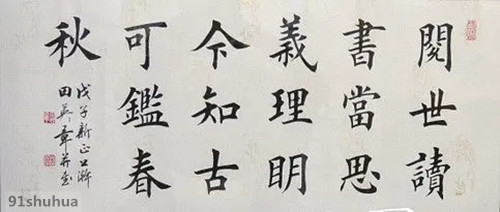 閱世讀
書當思
義理明
今知古
可鑑春
秋
戊子新正上澣
田英章并書
91shuhua